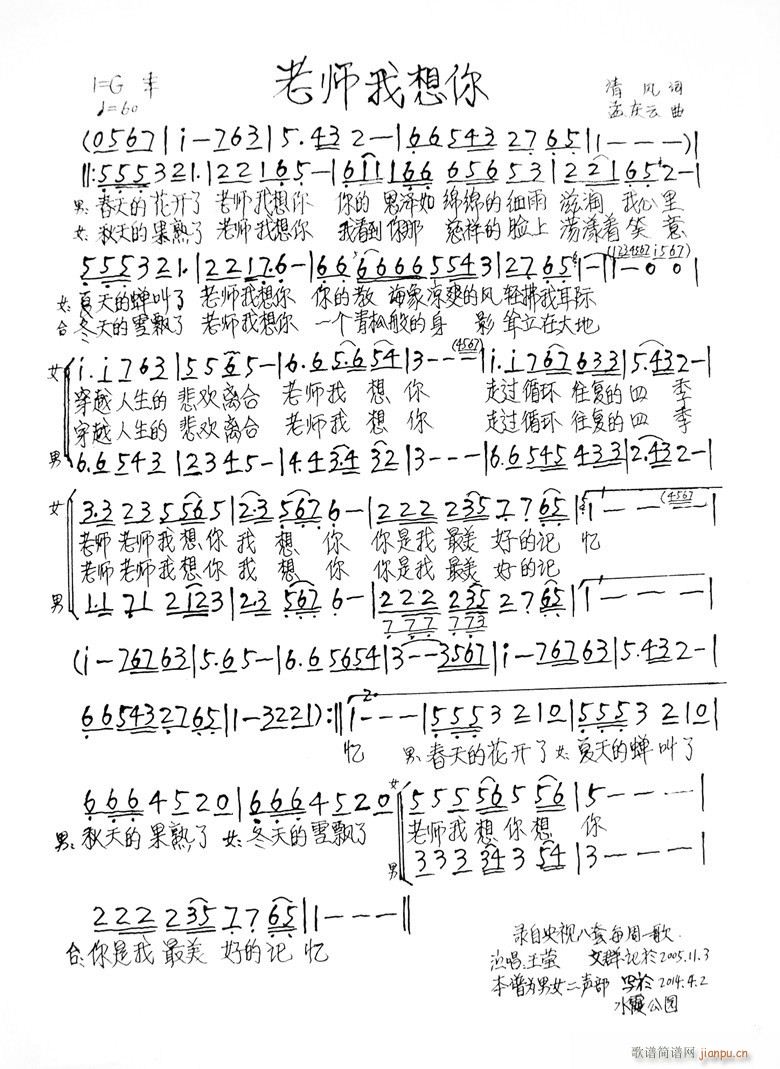 老师我想你
1=G
♩=60
清风词
孟庆云曲
(0567|i—763|5.432—|66543 2765|1———)|
||:555321.|22165—|6i1166 656 53|221652—|
男:春天的花开了 老师我想你 你的恩泽如绵绵的细雨 滋润我心里
女:秋天的果熟了 老师我想你 我看到你那 慈祥的脸上 荡漾着笑意
555321.|22176—|66 6666 5543|2765|1—|1—00|
(1234567 i567)
女:夏天的蝉叫了 老师我想你 你的教 诲象凉爽的风 轻拂我耳际
合:冬天的雪飘了 老师我想你 一个青松般的身 影 耸立在大地
女 i.i763|5565—|6.65.654|3——— (4567)|i.i767633|5.432—|
穿越人生的 悲欢离合 老师我 想 你 走过循环 往复的四 季
穿越人生的 悲欢离合 老师我 想 你 走过循环 往复的四 季
男 6.6543|2345—|4.434 32|3———|6.6545433|2.432—|
女 3.3 23 5565|2.3 567 6—|222 235 7765|1—— (4567)|
老师 老师我想你 我 想 你 你是我 最美 好的记 忆
老师 老师我想你 我 想 你 你是我 最美 好的记
男 1.1 71 2123|2.3 567 6—|222 235 2765|1———|
777 773
(i—76763|5.65—|6.65654|3——3567|i—76763|5.432—|
665432765|1—3221):|| 2. 1———|5553210|5553210|
忆 男:春天的花开了 女:夏天的蝉叫了
6664520|6664520| 女 555565 56|5———|
男:秋天的果熟了 女:冬天的雪飘了 老师我想你想 你
男 333343 54|3———|
222 235 7765|1———||
合:你是我 最美 好的记 忆
录自央视八套每周一歌
演唱:王莹 文群记於2005.11.3
本谱为男女二声部 写於2014.4.2
公园
歌谱简谱网 jianpu.cn